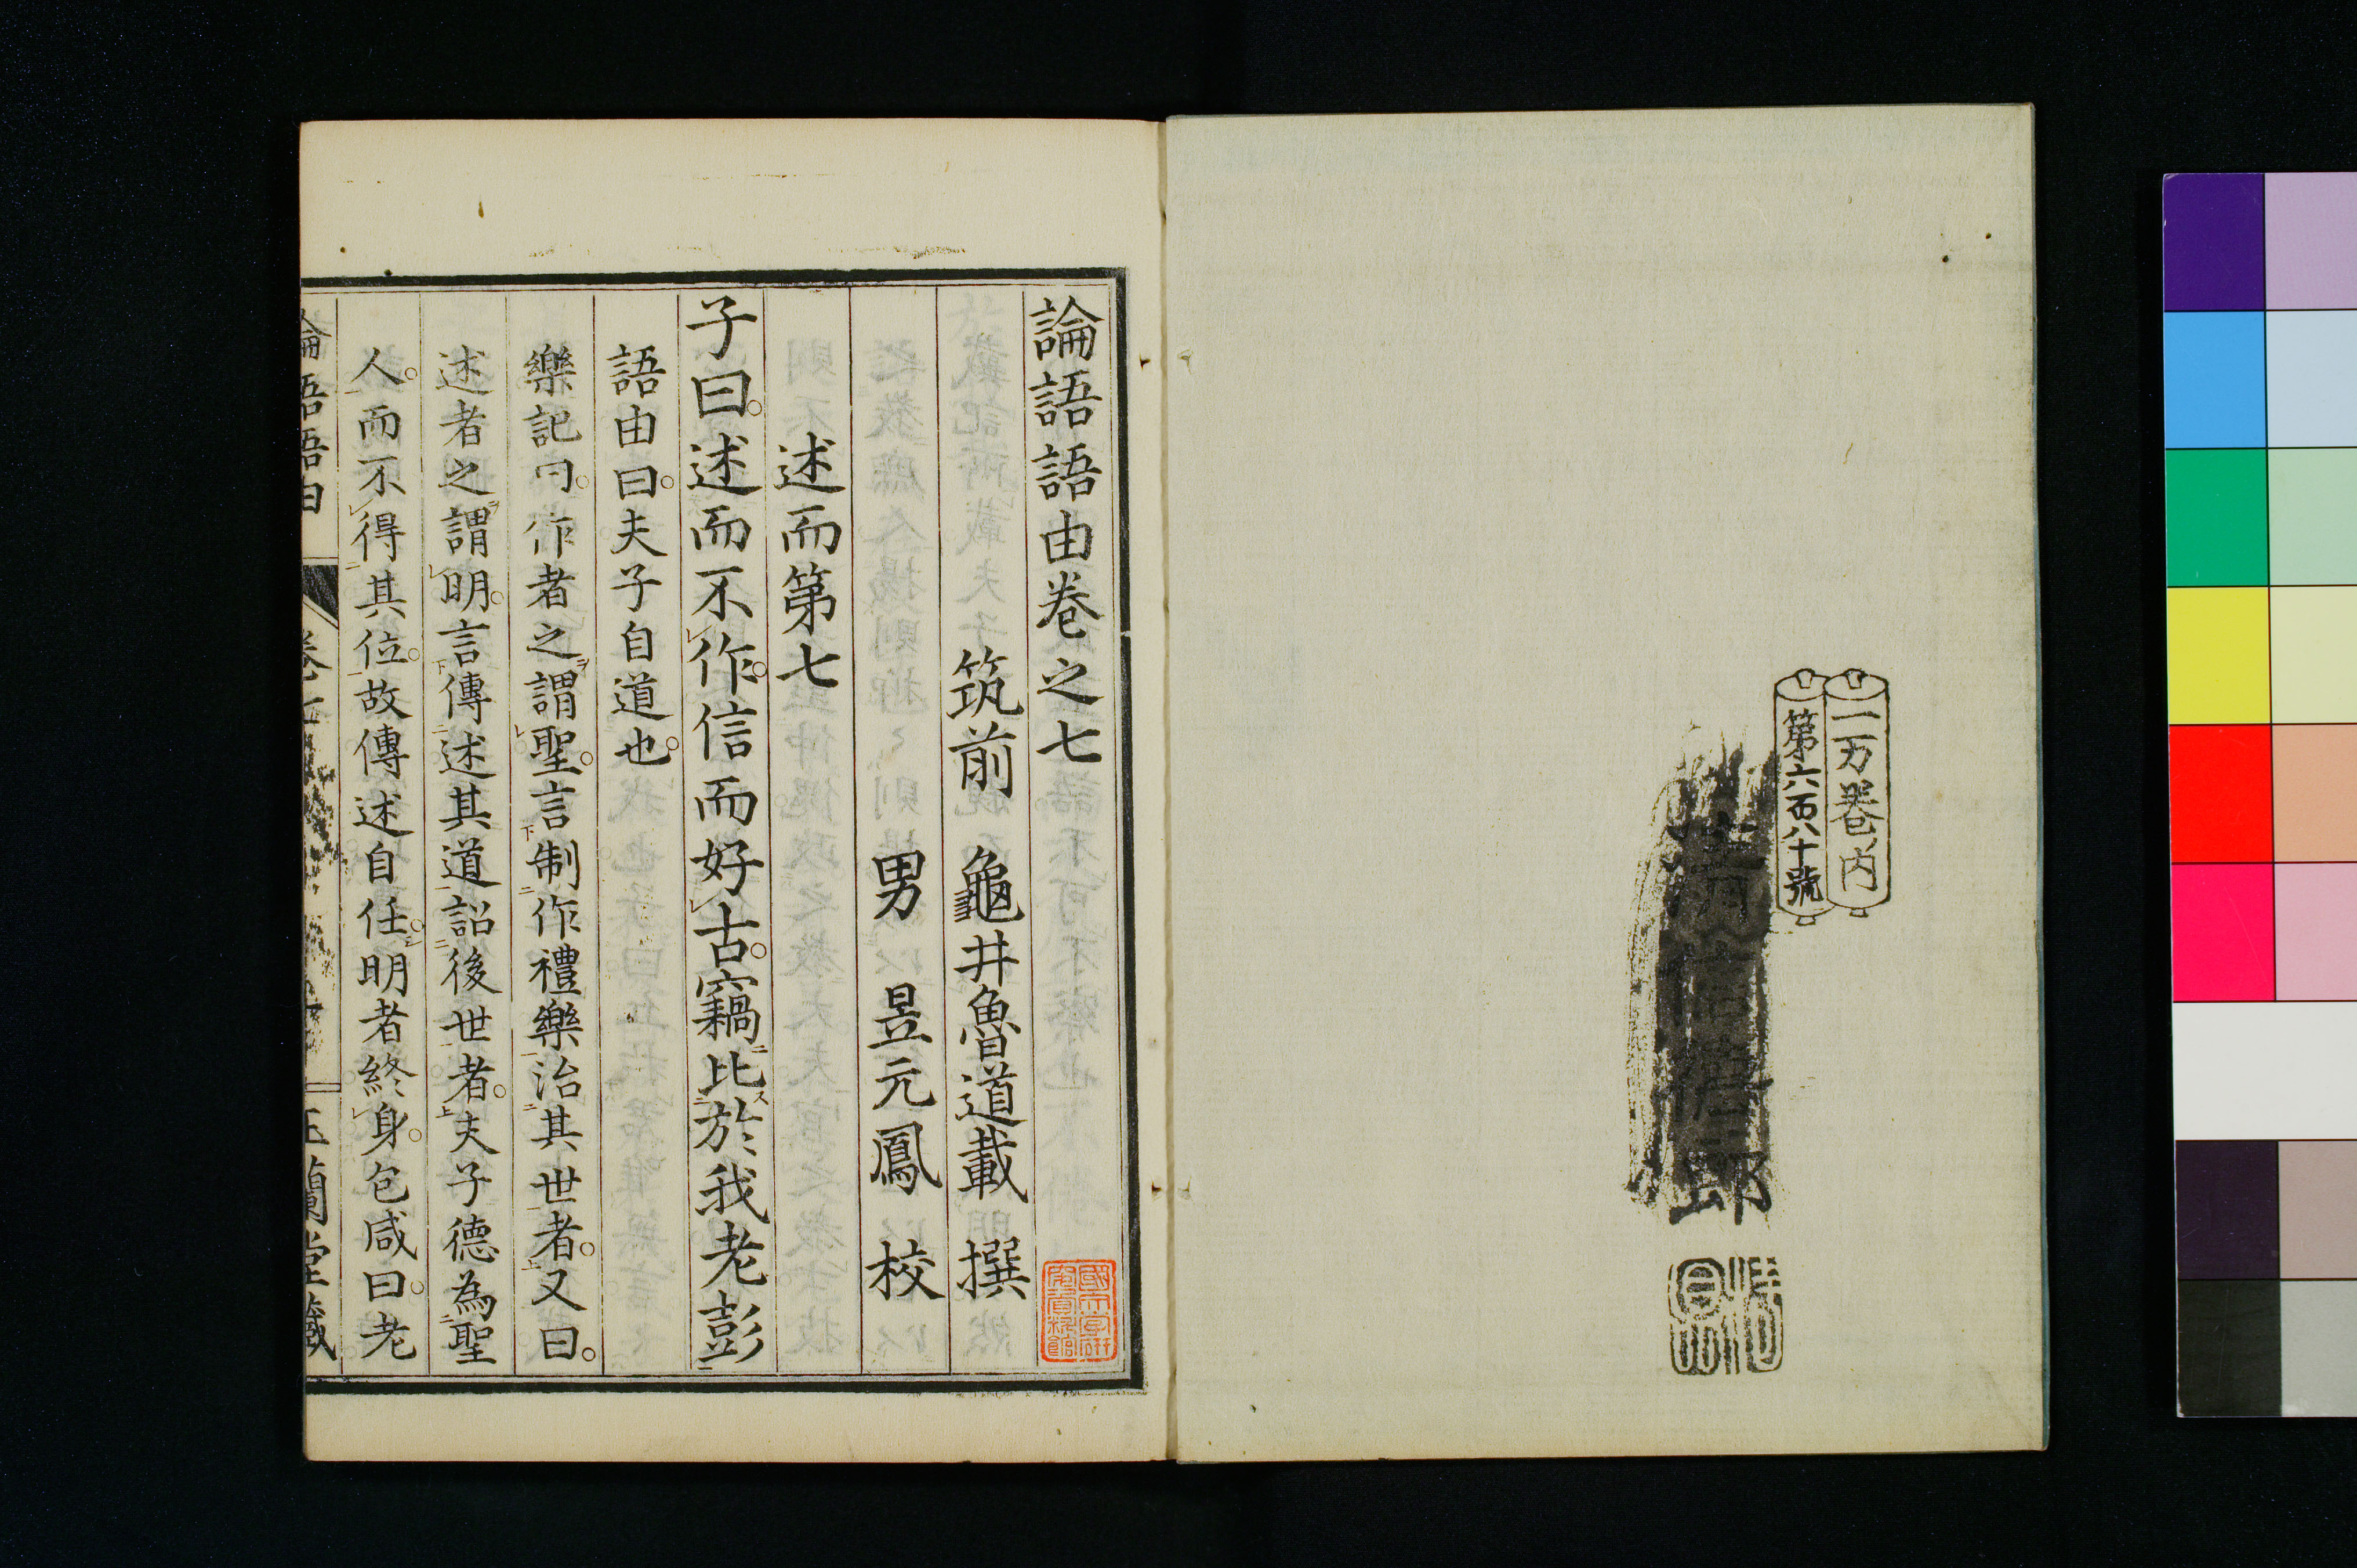 二万巻内
第六百八十號
論語語由卷之七
筑前 龜井魯道載 撰
男 昱元鳳 校
述而第七
子曰。述而不作。信而好古。竊比於我老彭
語由曰。夫子自道也。
樂記曰。作者之謂聖。言制作禮樂治其世者。又曰。
述者之謂明。言傳述其道詔後世者。夫子德為聖
人。而不得其位。故傳述自任。明者終身。包咸曰。老
論語語由 卷七 玉蘭堂藏